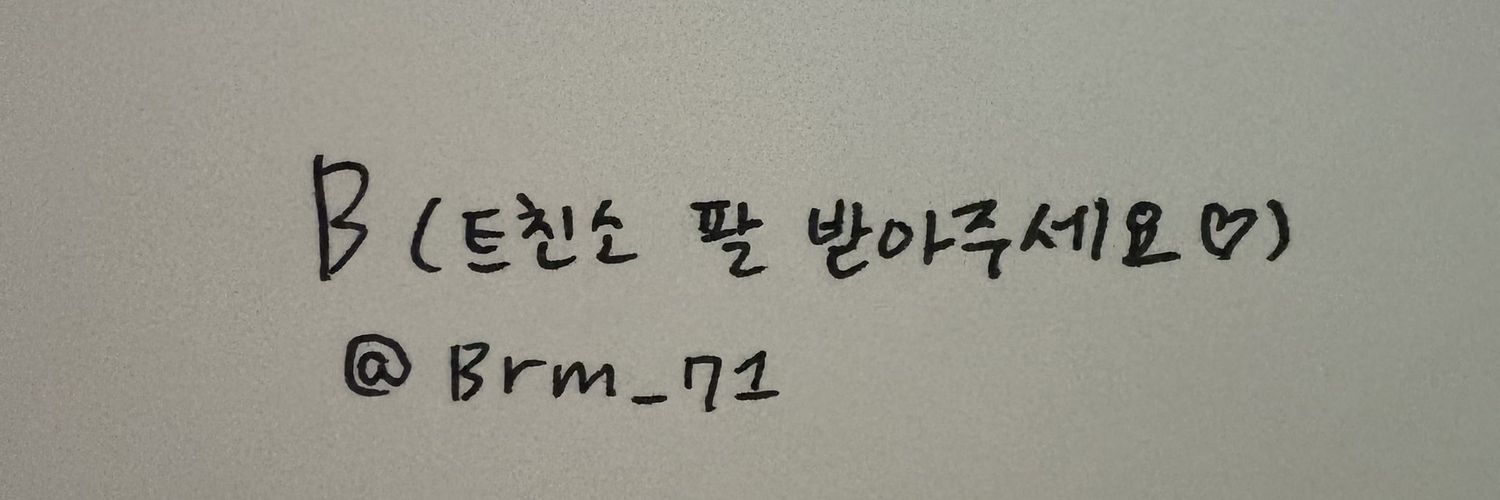 B (트친소 팔 받아주세요♡)
@Brm_71